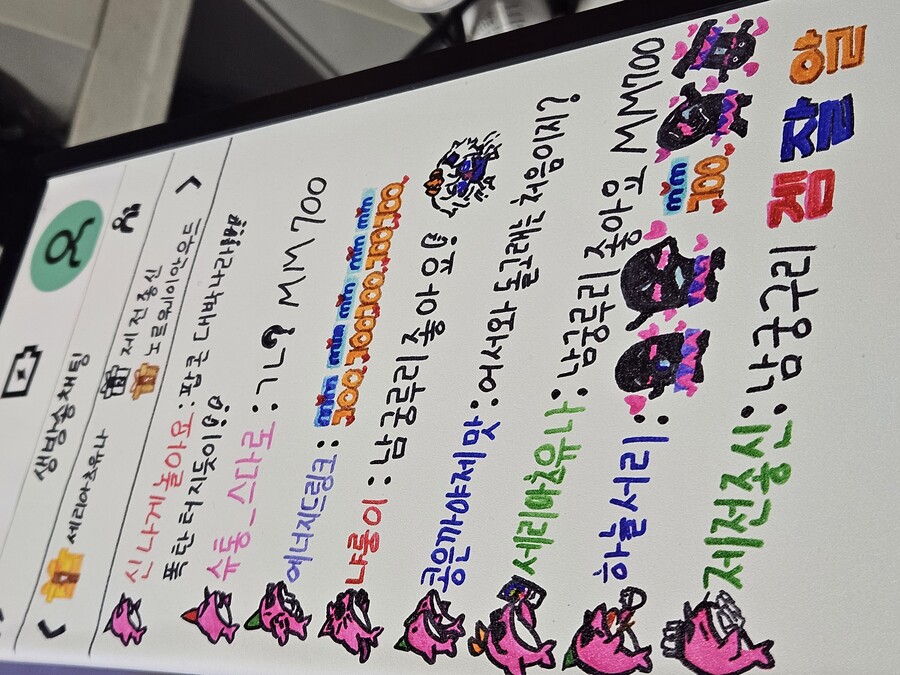 생방송채팅
세리아츠유나
제전종신
노르웨이안우드
신나게놀아요:팝콘 대박나라!!!
폭탄 터지듯이!!
슈통_스다로:ㄱㄴ? MM700
에너지드링크: mm 700 mm 700 mm 700 mm 700 mm 700
냐룽이:남궁루리좋아요!
콩은까야제맛:어서와 돌고래는 처음이지?
세리아츠유나:남궁루리 좋아요 MM700
하늘서리: mm 700
제전종신:남궁구리 겜잘알